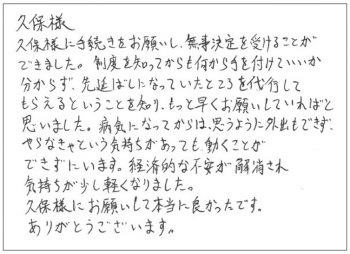 久保様
久保様に手続きをお願いし、無事決定を受けることが
できました。制度を知ってからも何から手を付けていいか
分からず、先延ばしになっていたところを代行して
もらえるということを知り、もっと早くお願いしていればと
思いました。病気になってからは、思うように外出もできず、
やらなきゃという気持ちがあっても動くことが
できずにいます。経済的な不安が解消され
気持ちが少し軽くなりました。
久保様にお願いして本当に良かったです。
ありがとうございます。